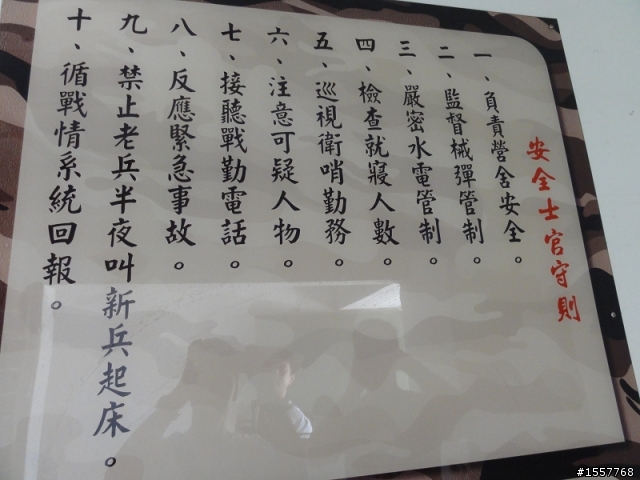 安全士官守則
一、負責營舍安全。
二、監督械彈管制。
三、嚴密水電管制。
四、檢查就寢人數。
五、巡視衛哨勤務。
六、注意可疑人物。
七、接聽戰勤電話。
八、反應緊急事故。
九、禁止老兵半夜叫新兵起床。
十、循戰情系統回報。
#1557768